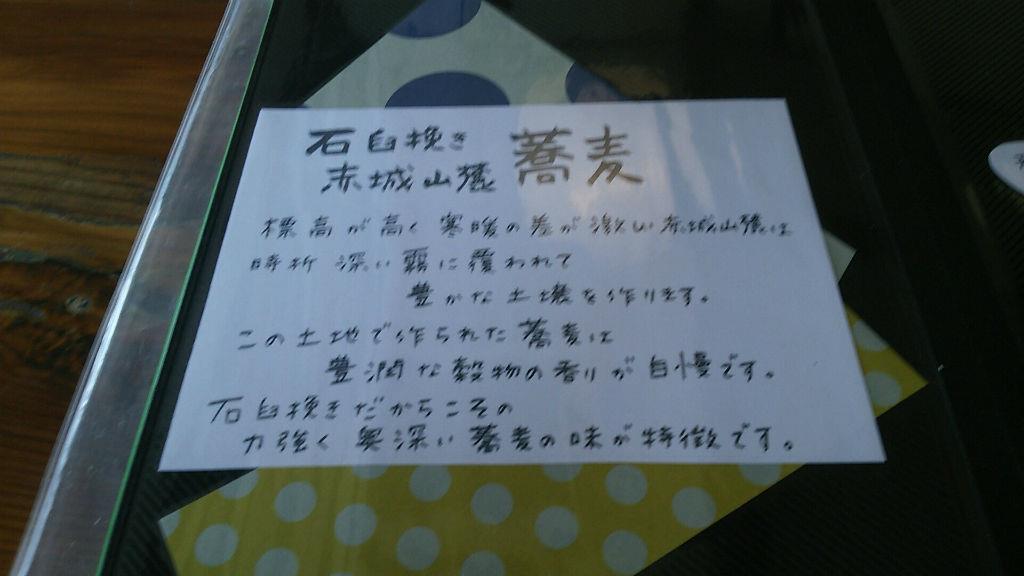 石臼挽き
赤城山麓 蕎麦
標高が高く寒暖の差が激しい赤城山麓は
時折 深い霧に覆われて
豊かな土壌を作ります。
この土地で作られた蕎麦は
豊潤な穀物の香りが自慢です。
石臼挽きだからこその
力強く 奥深い蕎麦の味が特徴です。